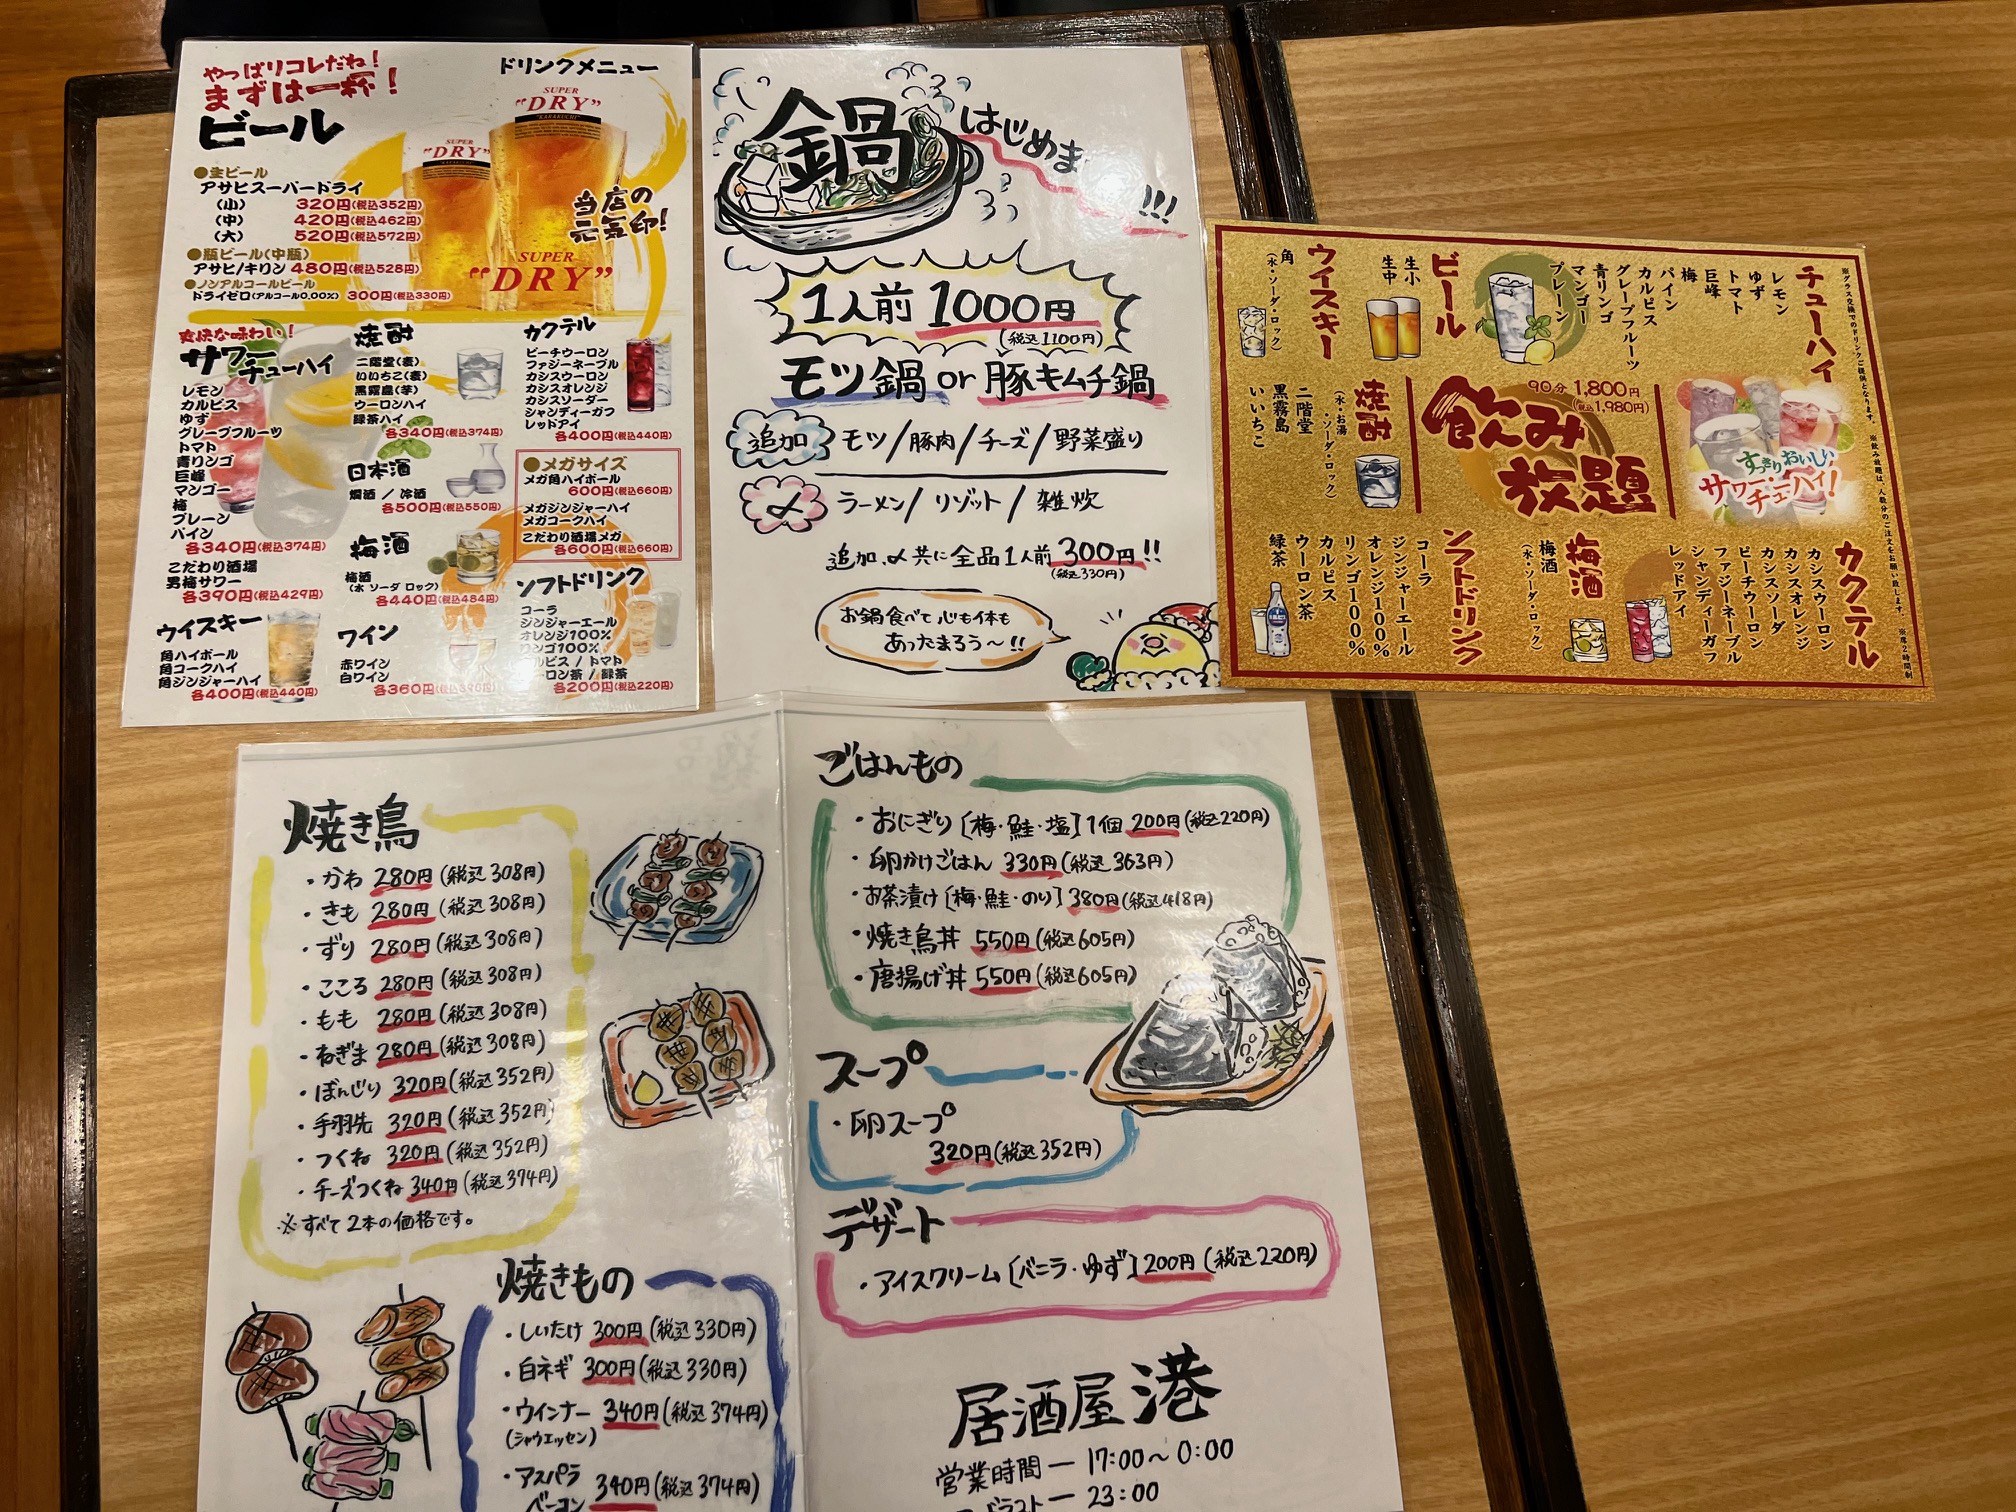 やっぱりコレだね!
まずは一杯!
ビール
ドリンクメニュー
SUPER
"DRY"
"KARAKUCHI"
SUPER
"DRY"
SUPER
"DRY"
当店の
元気印!
●生ビール
アサヒスーパードライ
(小) 320円(税込352円)
(中) 420円(税込462円)
(大) 520円(税込572円)
●瓶ビール(中瓶)
アサヒ/キリン 480円(税込528円)
●ノンアルコールビール
ドライゼロ(アルコール0.00%) 300円(税込330円)
爽快な味わい!
サワー
チューハイ
レモン
カルピス
ゆず
グレープフルーツ
トマト
青リンゴ
巨峰
マンゴー
梅
プレーン
パイン
各340円(税込374円)
こだわり酒場
男梅サワー
各390円(税込429円)
ウイスキー
角ハイボール
角コークハイ
角ジンジャーハイ
各400円(税込440円)
焼酎
二階堂(麦)
いいちこ(麦)
黒霧島(芋)
ウーロンハイ
緑茶ハイ
各340円(税込374円)
日本酒
燗酒 / 冷酒
各500円(税込550円)
梅酒
梅酒
(水 ソーダ ロック)
各440円(税込484円)
ワイン
赤ワイン
白ワイン
各360円(税込396円)
カクテル
ピーチウーロン
ファジーネーブル
カシスウーロン
カシスオレンジ
カシスソーダー
シャンディーガフ
レッドアイ
各400円(税込440円)
●メガサイズ
メガ角ハイボール
600円(税込660円)
メガジンジャーハイ
メガコークハイ
こだわり酒場メガ
各600円(税込660円)
ソフトドリンク
コーラ
ジンジャーエール
オレンジ100%
リンゴ100%
カルピス / トマト
ウーロン茶 / 緑茶
各200円(税込220円)
鍋
はじめま
!!!
1人前 1000円
(税込1100円)
モツ鍋 or 豚キムチ鍋
追加 モツ/豚肉/チーズ/野菜盛り
〆 ラーメン/リゾット/雑炊
追加、〆共に全品1人前300円!!
(税込330円)
お鍋食べて心も体も
あったまろう〜!!
※グラス交換でのドリンクご提供となります。 ※飲み放題は、人数分のご注文をお願い致します。 ※席2時間制
チューハイ
レモン
ゆず
トマト
巨峰
梅
パイン
カルピス
グレープフルーツ
青リンゴ
マンゴー
プレーン
ビール
生小
生中
ウイスキー
角
(水・ソーダ・ロック)
すっきりおいしい
サワー・
チューハイ!
90分 1,800円
(税込1,980円)
飲み
放題
焼酎
(水・お湯
・ソーダ・ロック)
二階堂
黒霧島
いいちこ
カクテル
カシスウーロン
カシスオレンジ
カシスソーダ
ピーチウーロン
ファジーネーブル
シャンディーガフ
レッドアイ
梅酒
梅酒
(水・ソーダ・ロック)
ソフトドリンク
コーラ
ジンジャーエール
オレンジ100%
リンゴ100%
カルピス
ウーロン茶
緑茶
焼き鳥
・かわ 280円(税込308円)
・きも 280円(税込308円)
・ずり 280円(税込308円)
・こころ 280円(税込308円)
・もも 280円(税込308円)
・ねぎま 280円(税込308円)
・ぼんじり 320円(税込352円)
・手羽先 320円(税込352円)
・つくね 320円(税込352円)
・チーズつくね 340円(税込374円)
※すべて2本の価格です。
焼きもの
・しいたけ 300円(税込330円)
・白ネギ 300円(税込330円)
・ウインナー 340円(税込374円)
(シャウエッセン)
・アスパラ
ベーコン 340円(税込374円)
ごはんもの
・おにぎり[梅・鮭・塩]1個 200円(税込220円)
・卵かけごはん 330円(税込363円)
・お茶漬け[梅・鮭・のり]380円(税込418円)
・焼き鳥丼 550円(税込605円)
・唐揚げ丼 550円(税込605円)
スープ
・卵スープ
320円(税込352円)
デザート
・アイスクリーム[バニラ・ゆず]200円(税込220円)
居酒屋 港
営業時間ー17:00〜0:00
ラストー23:00